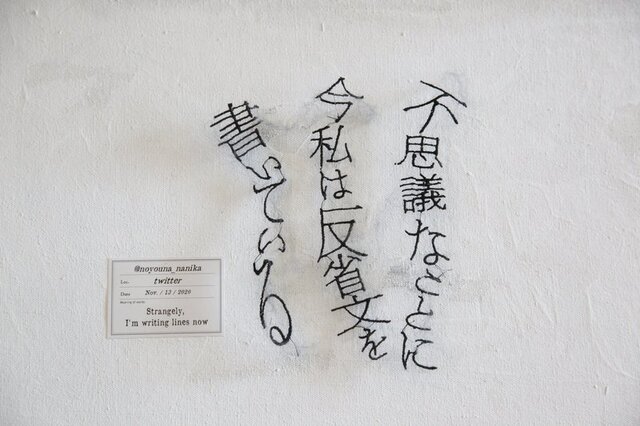 不思議なことに
今私は反省文を
書いている
@noyouna_nanika
Loc. twitter
Date Nov. / 13 / 2020
Strangely,
I'm writing lines now